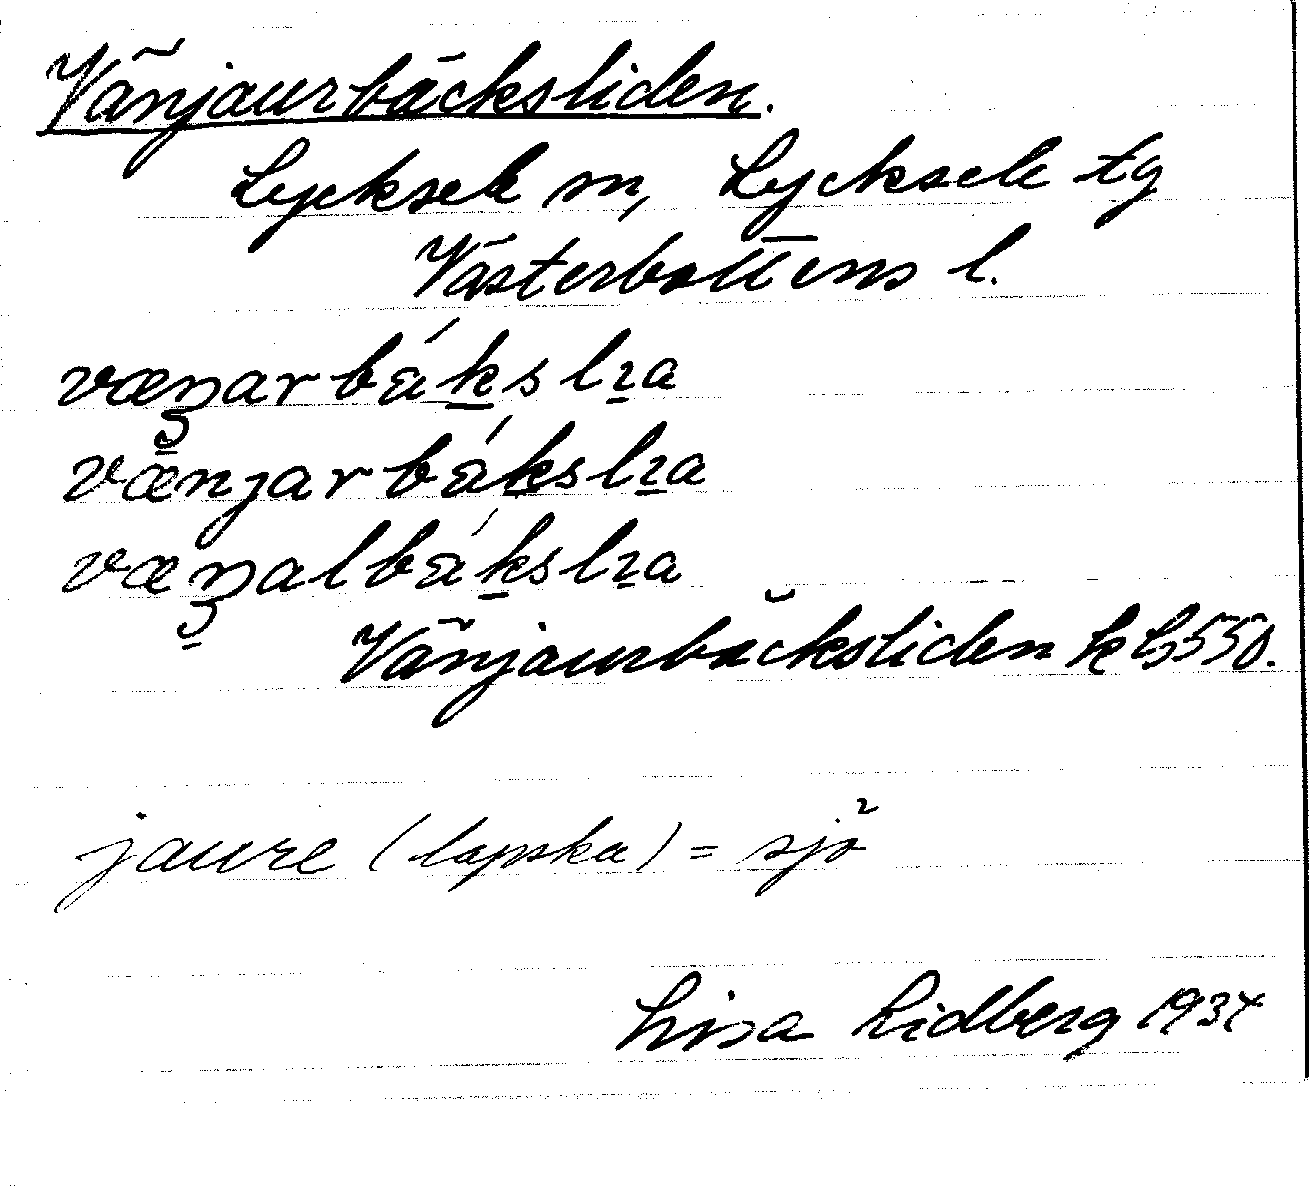 Vänjaurbäcksliden.
Lycksele m, Lycksele tg
Västerbottens l.
væŋarbákslıa
vænjarbákslıa
væŋalbákslıa
Vänjaurbäcksliden k bl 550.
jaure (lapska) = sjö
Lisa Lidberg 1934